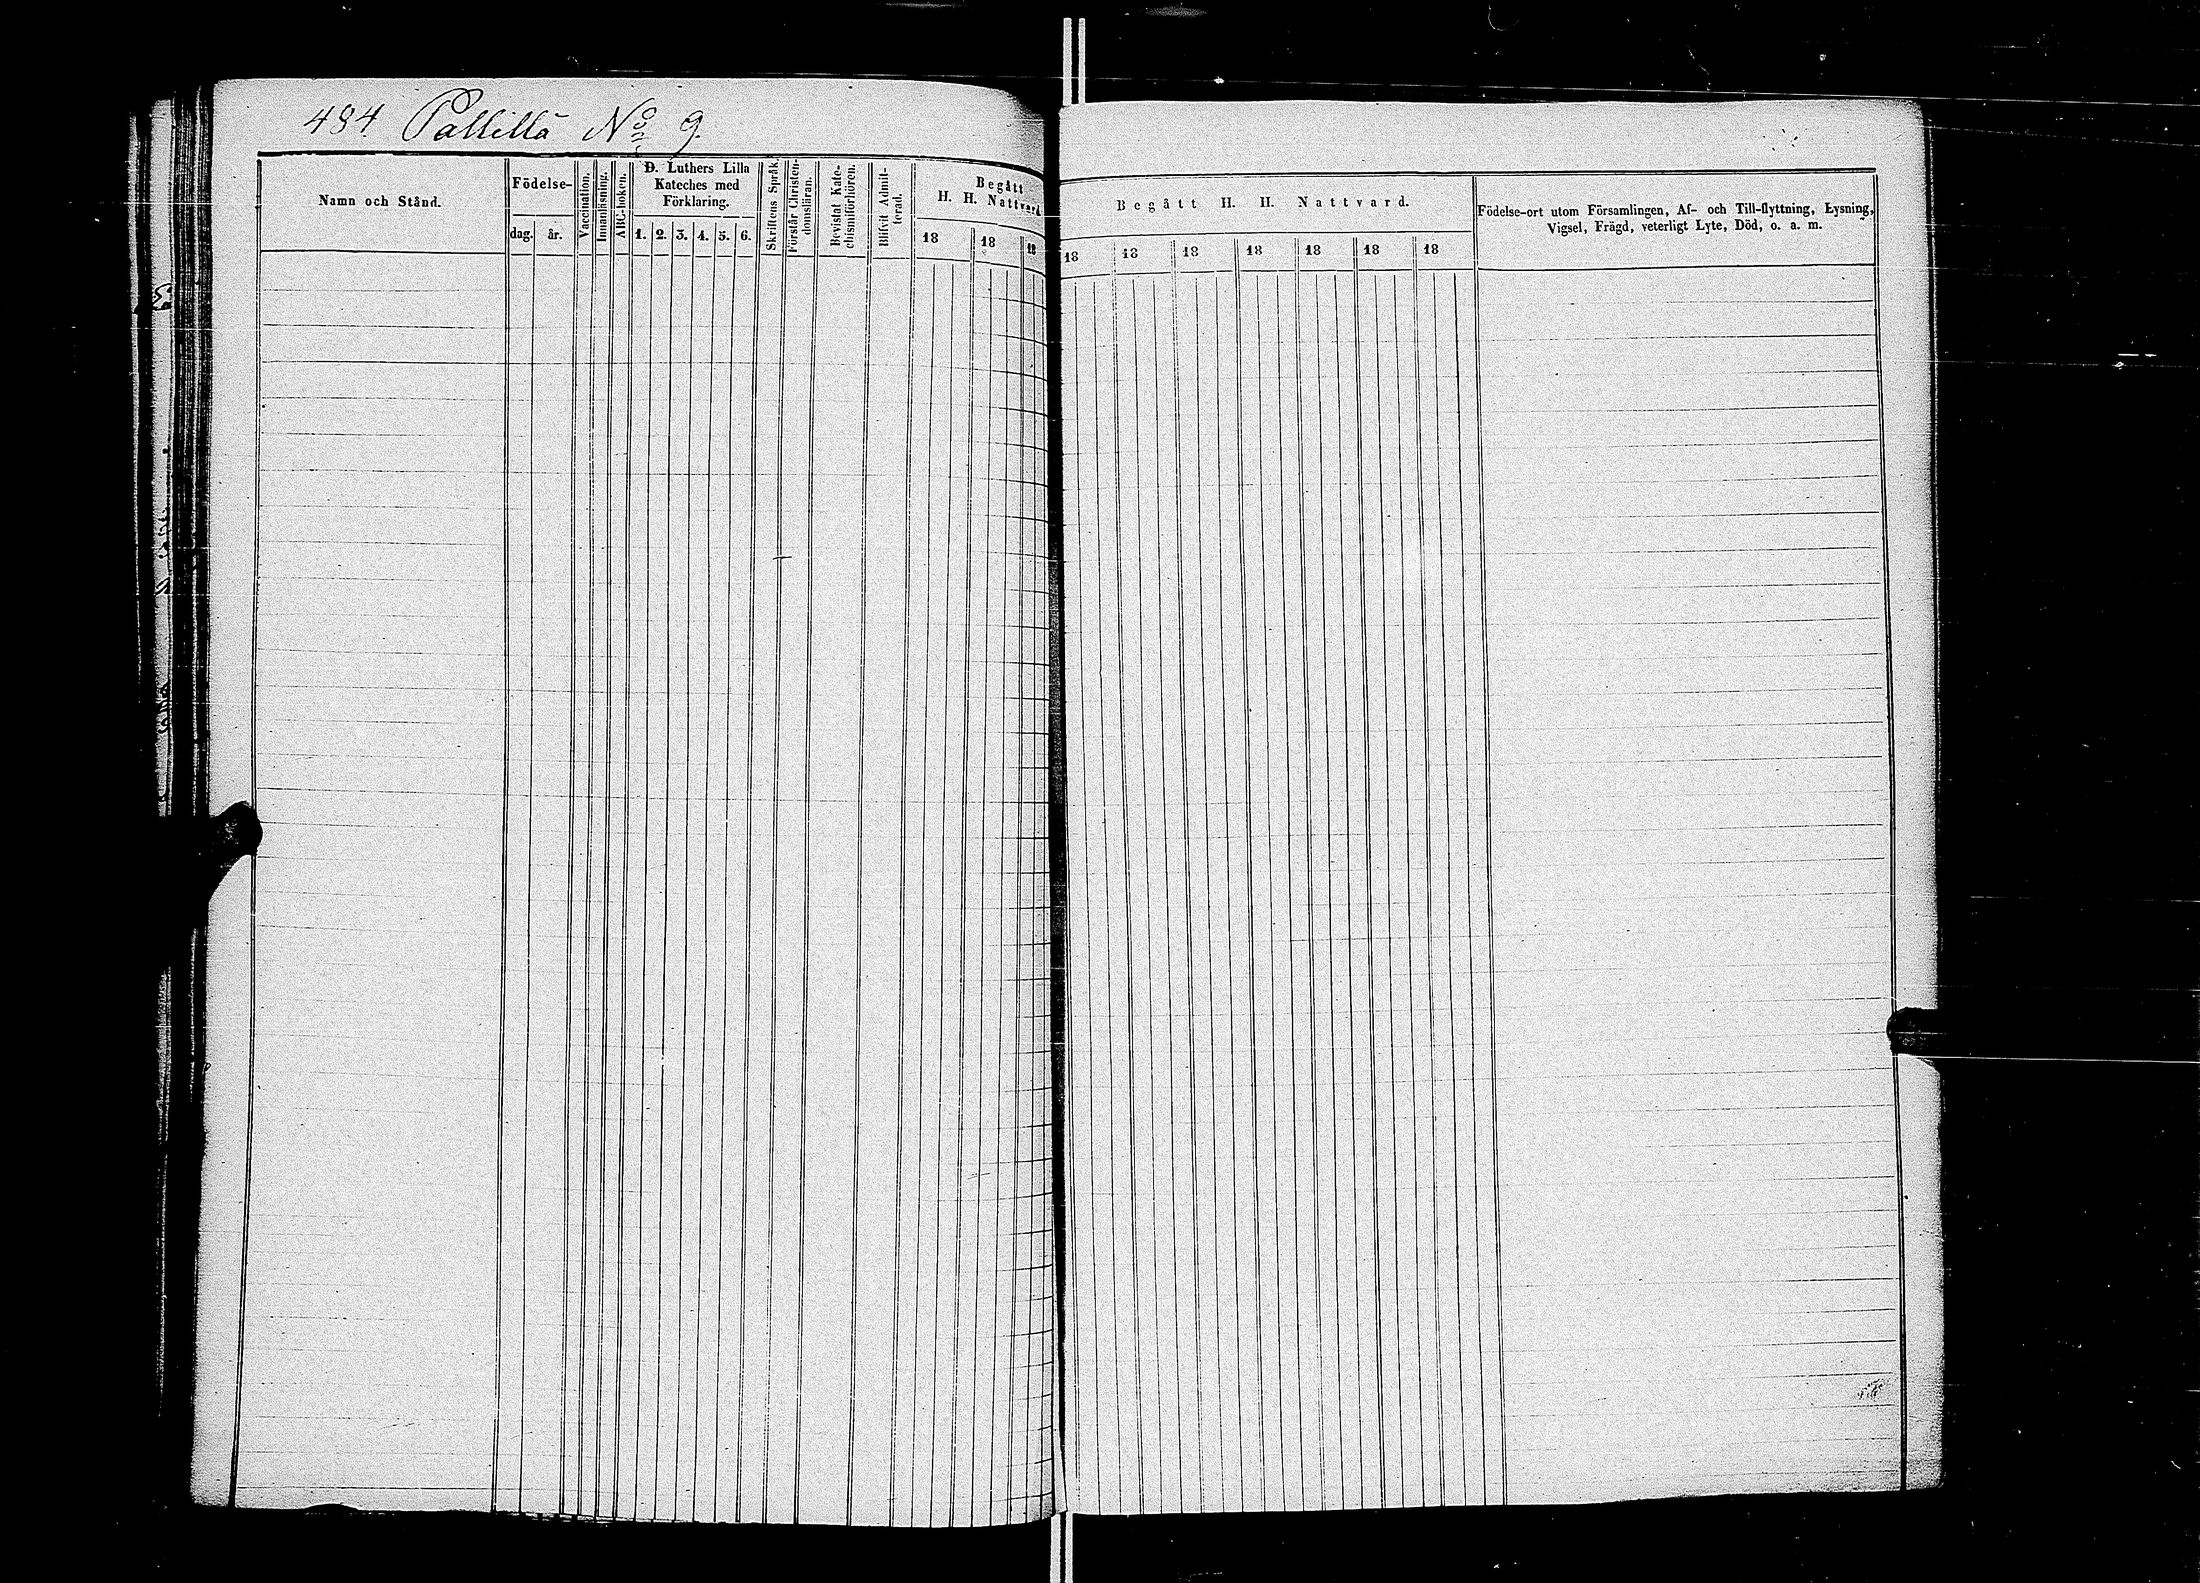 484. Pallilä No 9.
Namn och Stånd.
Födelse-
dag. år.
Vaccination.
Innanläsning.
ABC-boken.
D. Luthers Lilla
Kateches med
Förklaring.
1. 2. 3. 4. 5. 6.
Skriftens Språk.
Förstår Christen-
domsläran.
Bevistat Kate-
chismiförhören.
Blifvit Admit-
terad.
Begått
H. H. Nattvard
18 18 18
Begått H. H. Nattvard.
18 18 18 18 18 18 18
Födelse-ort utom Församlingen, Af- och Till-flyttning, Lysning,
Vigsel, Frägd, veterligt Lyte, Död, o. a. m.